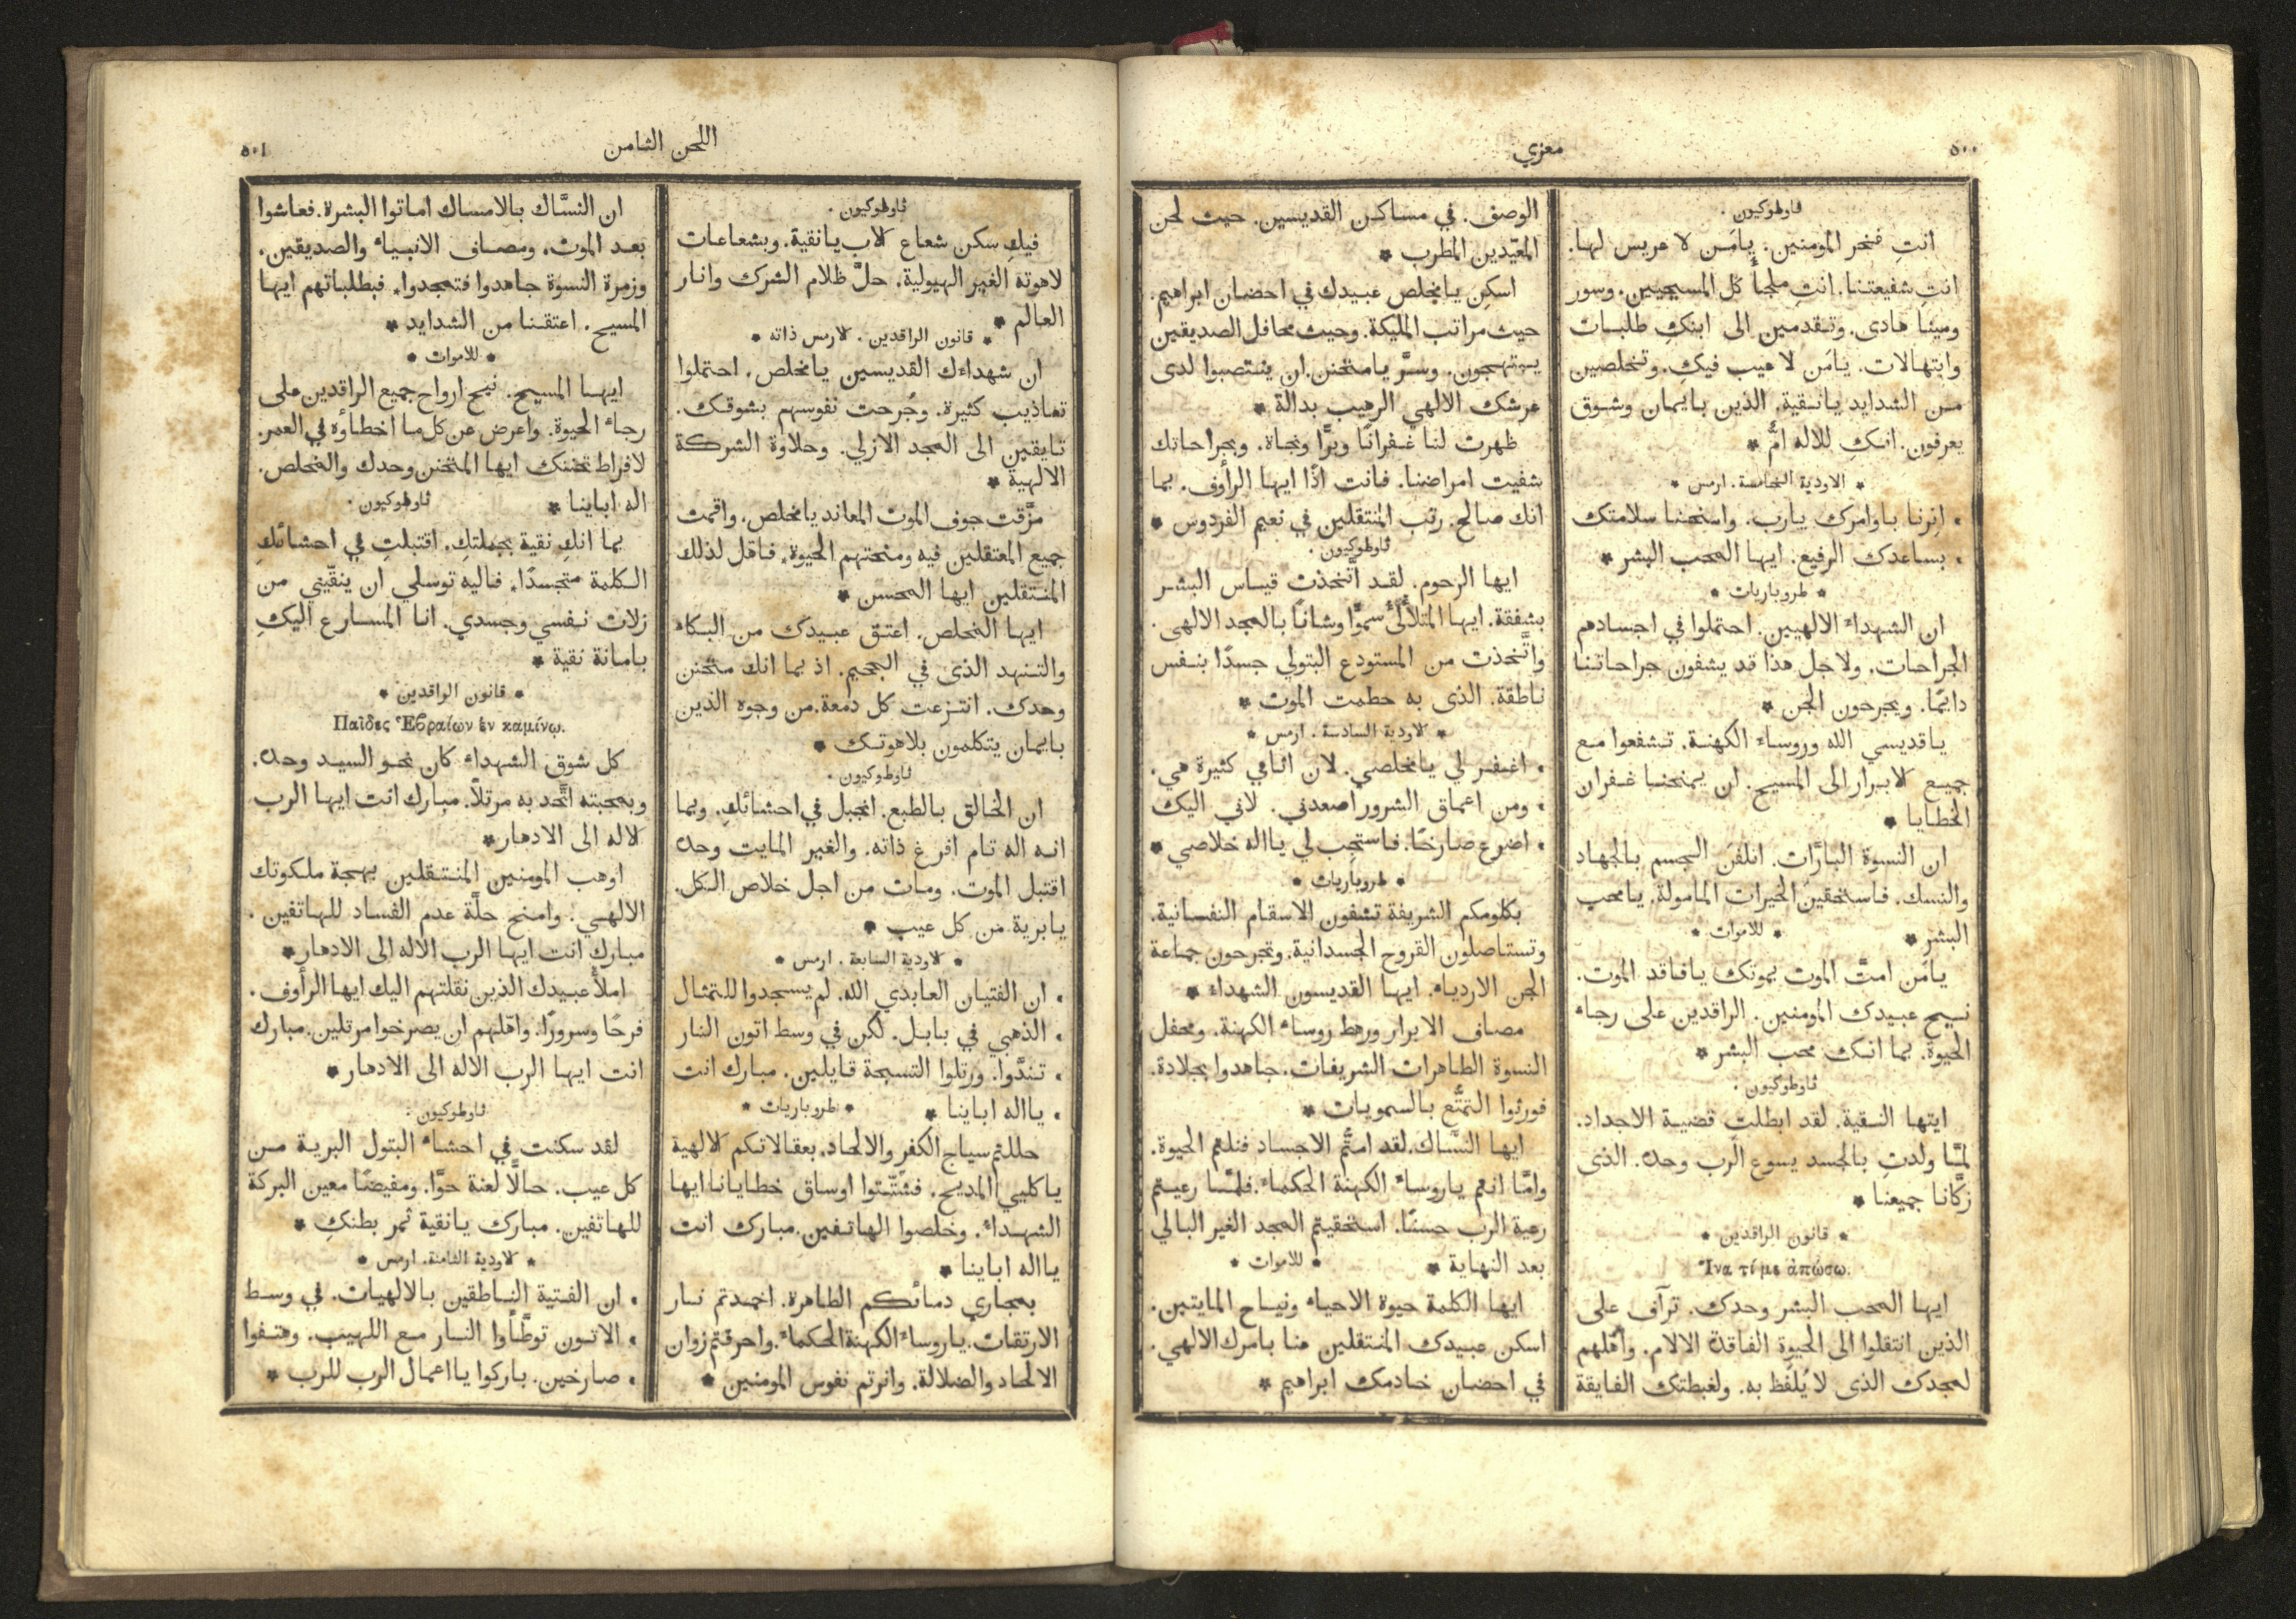 ٥٠٠
معزي
ثاوطوكيون.
انتِ فخر المومنين. يامَن لا عريس لها.
انتِ شفيعتنا. انتِ ملجأ كل المسيحيين. وسور
ومينا هادى. وتقدمين الى ابنكِ طلبات
وابتهالات. يامَن لا عيب فيكِ. وتخلصين
من الشدايد يانقية. الذين بايمان وشوق
يعرفون. انكِ للاله امٌّ *
* الاودية الخامسة. ارمس *
٠ انِرنا باوامرك يارب. وامنحنا سلامتك
٠ بساعدك الرفيع. ايها المحب البشر *
* طروباريات *
ان الشهداء الالهيين. احتملوا في اجسادهم
الجراحات. ولاجل هذا قد يشفون جراحاتنا
دايمًا. ويجرحون الجن *
ياقديسي الله وروساء الكهنة. تشفعوا مع
جميع لابرار الى المسيح. ان يمنحنا غفران
الخطايا *
ان النسوة البارَّات. اتلفنَ الجسم بالجهاد
والنسك. فاستحقينَ الخيرات المامولة. يامحب
البشر *
* للاموات *
يامَن امتَّ الموت بموتك يافاقد الموت.
نيح عبيدك المومنين. الراقدين على رجاء
الحيوة. بما انك محب البشر *
ثاوطوكيون.
ايتها النقية. لقد ابطلتِ قضية الاجداد.
لمَّا ولدتِ بالجسد يسوع الرب وحده. الذى
زكَّانا جميعنا *
* قانون الراقدين *
Ἵνα τί με ἀπώσω.
ايها المحب البشر وحدك. ترآف على
الذين انتقلوا الى الحيوة الفاقدة الالام. وأهلهم
لمجدك الذى لا يُلفَظ به. ولغبطتك الفايقة
الوصف. في مساكن القديسين. حيث لحن
المعيّدين المطرب *
اسكن يامخلص عبيدك في احضان ابراهيم.
حيث مراتب المليكة. وحيث محافل الصديقين
يبتهجون. وسرَّ يامتحنن. ان ينتصبوا لدى
عرشك الالهي الرهيب بدالة *
ظهرت لنا غفرانًا وبرًّا ونجاة. وبجراحاتك
شفيت امراضنا. فانت اذًا ايها الرأوف. بما
انك صالح. رتب المنتقلين في نعيم الفردوس *
ثاوطوكيون.
ايها الرحوم. لقد اتَّخذت قياس البشر
بشفقة. ايها المتلألئ سموًّا وشانًا بالمجد الالهى.
واتَّخذت من المستودع البتولي جسدًا بنفس
ناطقة. الذى به حطمت الموت *
* لاودية السادسة. ارمس *
٠ اغفر لي يامخلصي. لان اثامي كثيرة هي.
٠ ومن اعماق الشرور أصعدني. لاني اليك
٠ اضرع صارخًا. فاستجِب لي يااله خلاصي *
* طروباريات *
بكلومكم الشريفة تشفون الاسقام النفسانية.
وتستاصلون القروح الجسدانية. وتجرحون جماعة
الجن الاردياء. ايها القديسون الشهداء *
مصاف الابرار ورهط روساء الكهنة. ومحفل
النسوة الطاهرات الشريفات. جاهدوا بجلادة.
فورثوا التمتُّع بالسمويات *
ايها النسَّاك. لقد امتُّم الاجساد فنلتم الحيوة.
وامَّا انتم ياروساء الكهنة الحكماء. فلمَّا رعيتم
رعية الرب حسنًا. استحقيتم المجد الغير البالي
بعد النهاية *
* للاموات *
ايها الكلمة حيوة الاحياء ونياح المايتين.
اسكن عبيدك المنتقلين منا بامرك الالهي.
في احضان خادمك ابراهيم *
اللحن الثامن
٥٠١
ثاوطوكيون.
فيكِ سكن شعاع لاب يانقية. وبشعاعات
لاهوته الغير الهيولية. حلَّ ظلام الشرك وانار
العالم *
* قانون الراقدين. لارمس ذاته *
ان شهداءك القديسين يامخلص. احتملوا
تعاذيب كثيرة. وجُرحت نفوسهم بشوقك.
تايقين الى المجد الازلي. وحلاوة الشركة
الالهية *
مزَّقت جوف الموت المعاند يامخلص. واقمت
جميع المعتقلين فيه ومنحتهم الحيوة. فاقل لذلك
المنتقلين ايها المحسن *
ايها المخلص. اعتق عبيدك من البكاء
والتنهد الذى في الجحيم. اذ بما انك متحنن
وحدك. انتزعت كل دمعة. من وجوه الذين
بايمان يتكلمون بلاهوتك *
ثاوطوكيون.
ان الخالق بالطبع. انجبل في احشائكِ. وبما
انه اله تام افرغ ذاته. والغير المايت وحده
اقتبل الموت. ومات من اجل خلاص الكل.
يابرية من كل عيب *
* لاودية السابعة. ارمس *
٠ ان الفتيان العابدي الله. لم يسجدوا للتمثال
٠ الذهبي في بابل. لكن في وسط اتون النار
٠ تندَّوا. ورتلوا التسبحة قايلين. مبارك انت
٠ يااله اباينا *
* طروباريات *
حللتم سياج الكفر والالحاد. بعقالاتكم لالهية
ياكليي المديح. فشتّتوا اوساق خطايانا ايها
الشهداء. وخلصوا الهاتفين. مبارك انت
يااله اباينا *
بمجاري دمائكم الطاهرة. اخمدتم نار
الارتقات. ياروساء الكهنة الحكماء. واحرقتم زوان
الالحاد والضلالة. وانرتم نفوس المومنين *
ان النسَّاك بالامساك اماتوا البشرة. فعاشوا
بعد الموت. ومصاف الانبياء والصديقين.
وزمرة النسوة جاهدوا فتمجدوا. فبطلباتهم ايها
المسيح. اعتقنا من الشدايد *
* للاموات *
ايها المسيح. نيح ارواح جميع الراقدين على
رجاء الحيوة. واعرض عن كل ما اخطأوه في العمر.
لافراط تحننك ايها المتحنن وحدك والمخلص.
اله اباينا *
ثاوطوكيون.
بما انكِ نقية بجملتكِ. اقتبلتِ في احشائكِ
الكلمة متجسدًا. فاليه توسلي ان ينقّيني من
زلات نفسي وجسدي. انا المسارع اليكِ
بامانة نقية *
* قانون الراقدين *
Παῖδες Ἑβραίων ἐν καμίνῳ.
كل شوق الشهداء كان نحو السيد وحده.
وبمحبته اتَّحد به مرتلاً. مبارك انت ايها الرب
لاله الى الادهار *
اوهب المومنين المنتقلين بهجة ملكوتك
الالهي. وامنح حلَّة عدم الفساد للهاتفين.
مبارك انت ايها الرب الاله الى الادهار *
املأ عبيدك الذين نقلتهم اليك ايها الرأوف.
فرحًا وسرورًا. واهلهم ان يصرخوا مرتلين. مبارك
انت ايها الرب الاله الى الادهار *
ثاوطوكيون.
لقد سكنت في احشاء البتول البرية من
كل عيب. حالًّا لعنة حوَّا. ومفيضًا معين البركة
للهاتفين. مبارك يانقية ثمر بطنكِ *
* لاودية الثامنة. ارمس *
٠ ان الفتية الناطقين بالالهيات. في وسط
٠ الاتون توطَّأوا النار مع اللهيب. وهتفوا
٠ صارخين. باركوا يااعمال الرب للرب *